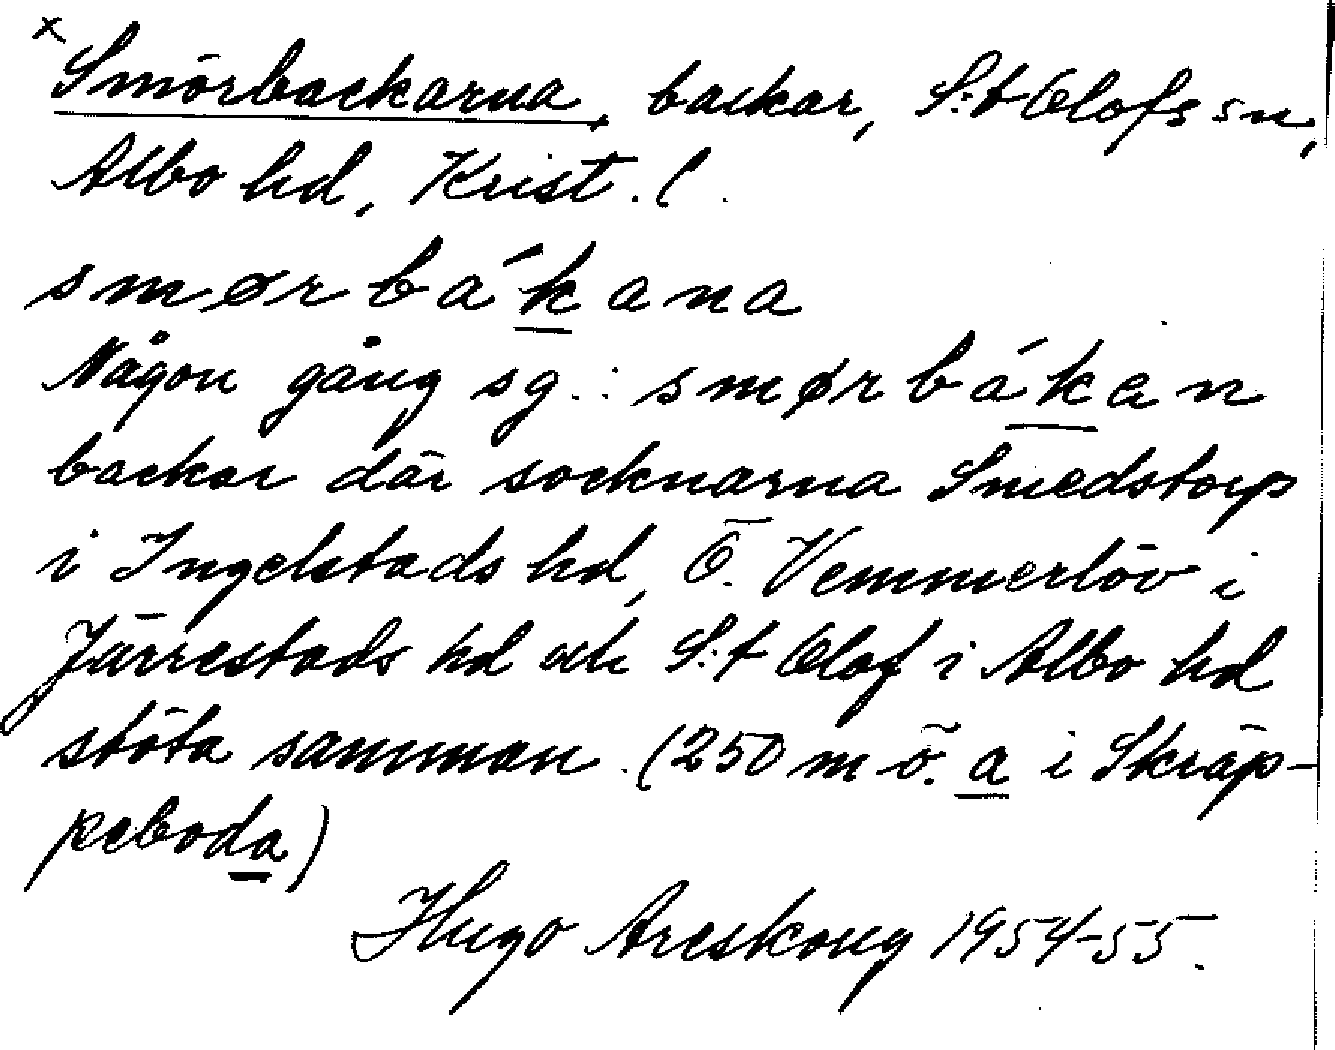 x
Smörbackarna, backar, S:t Olofs sn,
Albo hd, Krist. l.
smørbákana
Någon gång sg.: smørbákan
backar där socknarna Smedstorp
i Ingelstads hd, Ö. Vemmerlöv i
Järrestads hd och S:t Olof i Albo hd
stöta samman. (250 m ö. a i Skräp-
peboda)
Hugo Areskoug 1954-55.